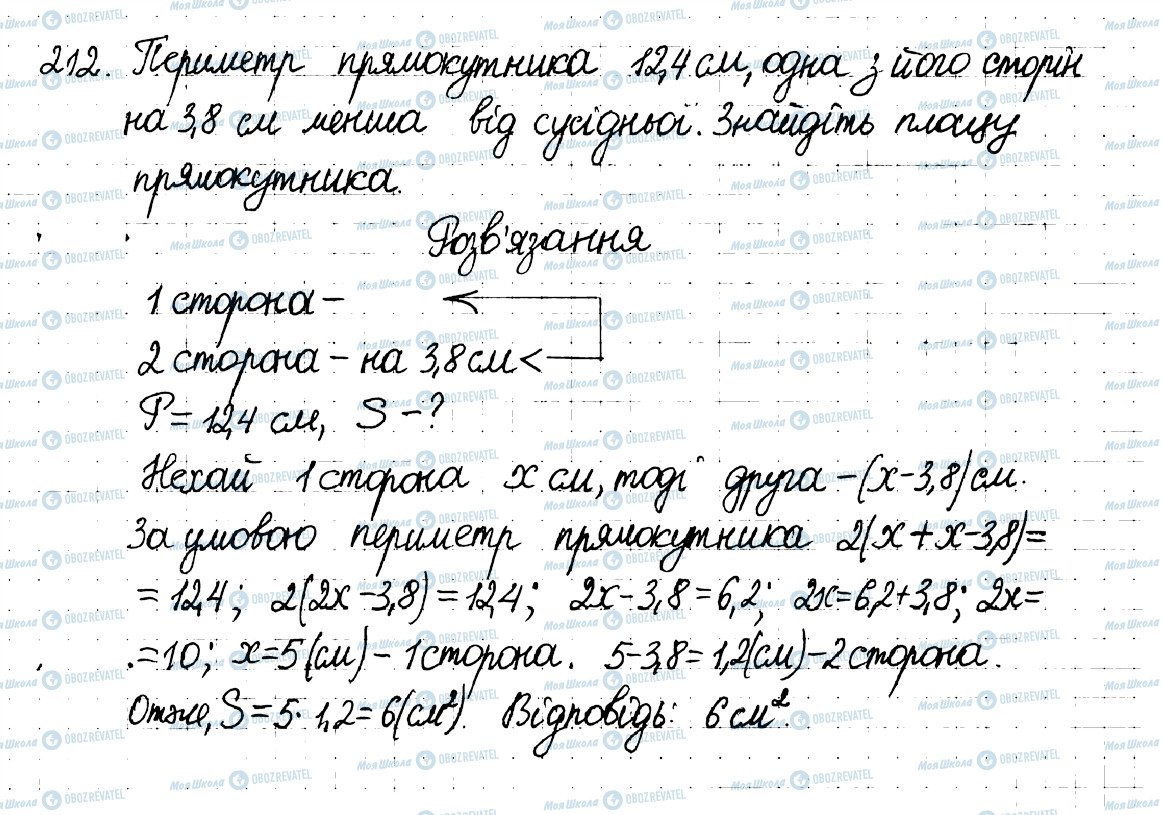 212. Периметр прямокутника 12,4 см, одна з його сторін
на 3,8 см менша від сусідньої. Знайдіть площу
прямокутника.
Розв'язання
1 сторона –
2 сторона – на 3,8 см <
P = 12,4 см, S – ?
Нехай 1 сторона x см, тоді друга – (x – 3,8) см.
За умовою периметр прямокутника 2(x + x – 3,8) =
= 12,4; 2(2x – 3,8) = 12,4; 2x – 3,8 = 6,2; 2x = 6,2 + 3,8; 2x =
= 10; x = 5 (см) – 1 сторона. 5 – 3,8 = 1,2 (см) – 2 сторона.
Отже, S = 5 · 1,2 = 6 (см²). Відповідь: 6 см².